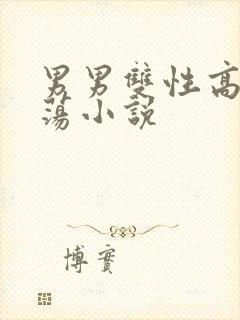 男男雙性高
蕩小說
博實